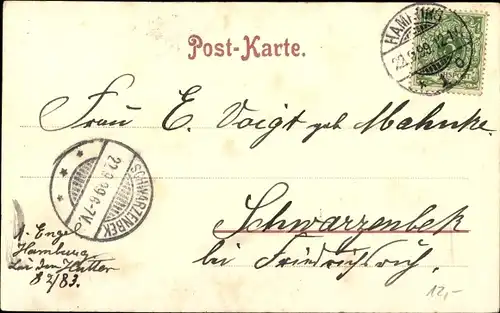 Post-Karte.
HAMBURG
22.9.99.
Frau E. Voigt geb. Mahnke.
SCHWARZENBEK
22.9.99.6-7V.
Schwarzenbek
bei Friedrichsruh.
A. Engel
Hamburg
82/83.
12,-